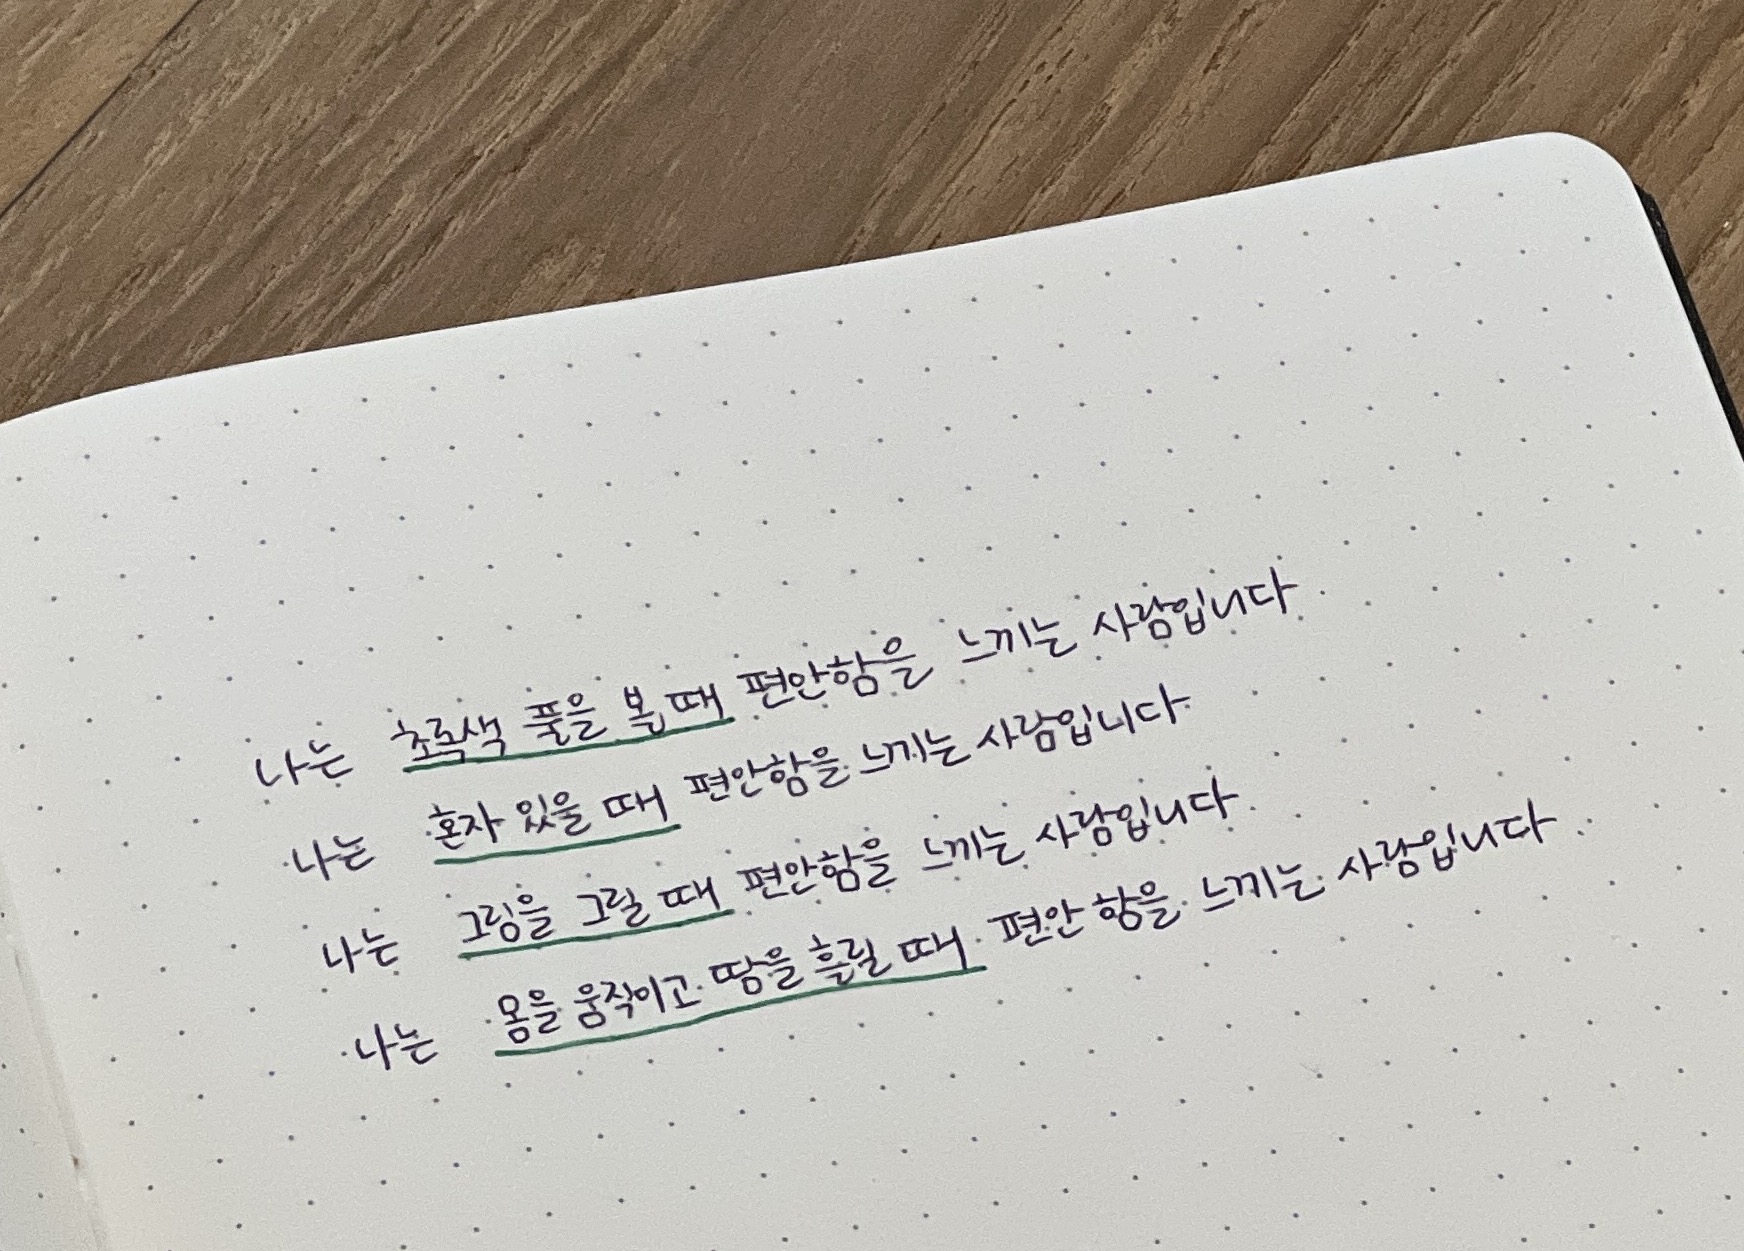 나는 초록색 풀을 볼 때 편안함을 느끼는 사람입니다
나는 혼자 있을 때 편안함을 느끼는 사람입니다
나는 그림을 그릴 때 편안함을 느끼는 사람입니다
나는 몸을 움직이고 땀을 흘릴 때 편안함을 느끼는 사람입니다